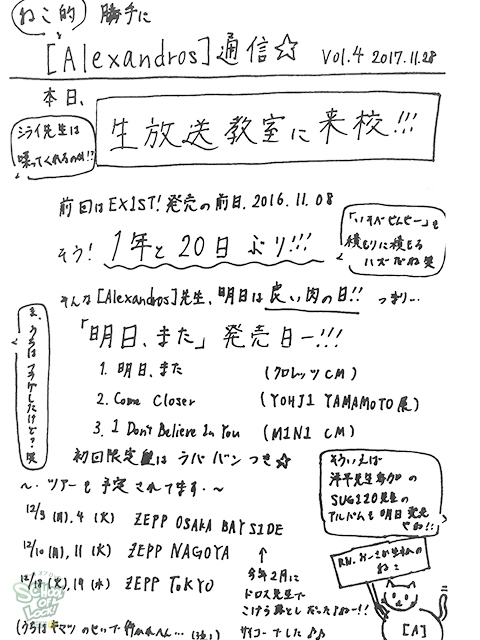 ねこ的 勝手に
[Alexandros]通信☆ Vol.4 2017.11.28
本日、
生放送教室に来校!!!
シライ先生は
喋ってくれるのか!?
前回はEXIST!発売の前日.2016.11.08
そう!1年と20日ぶり!!!
積もりに積もる
ハズだね笑
そんな[Alexandros]先生、明日は良い肉の日!! つまり…
「明日、また」発売日ー!!!
ま、うちはフラゲしたけど?笑
1. 明日、また (クロレッツCM)
2. Come Closer (YOHJI YAMAMOTO展)
3. I Don't Believe In You (MINI CM)
初回限定盤は ラババンつき☆
〜.ツアーも予定されてます.〜
そういえば
洋平先生参加の
SUGIZO先生の
アルバムも明日発売
やね!!
12/3(月),4(火) ZEPP OSAKA BAYSIDE
12/10(月),11(火) ZEPP NAGOYA
12/18(火),19(水) ZEPP TOKYO
↑
今年2月に
ドロス先生で
こけら落としだったよねー!!
サイコーでした♪♪
ねこ
[A]
School of Lock!